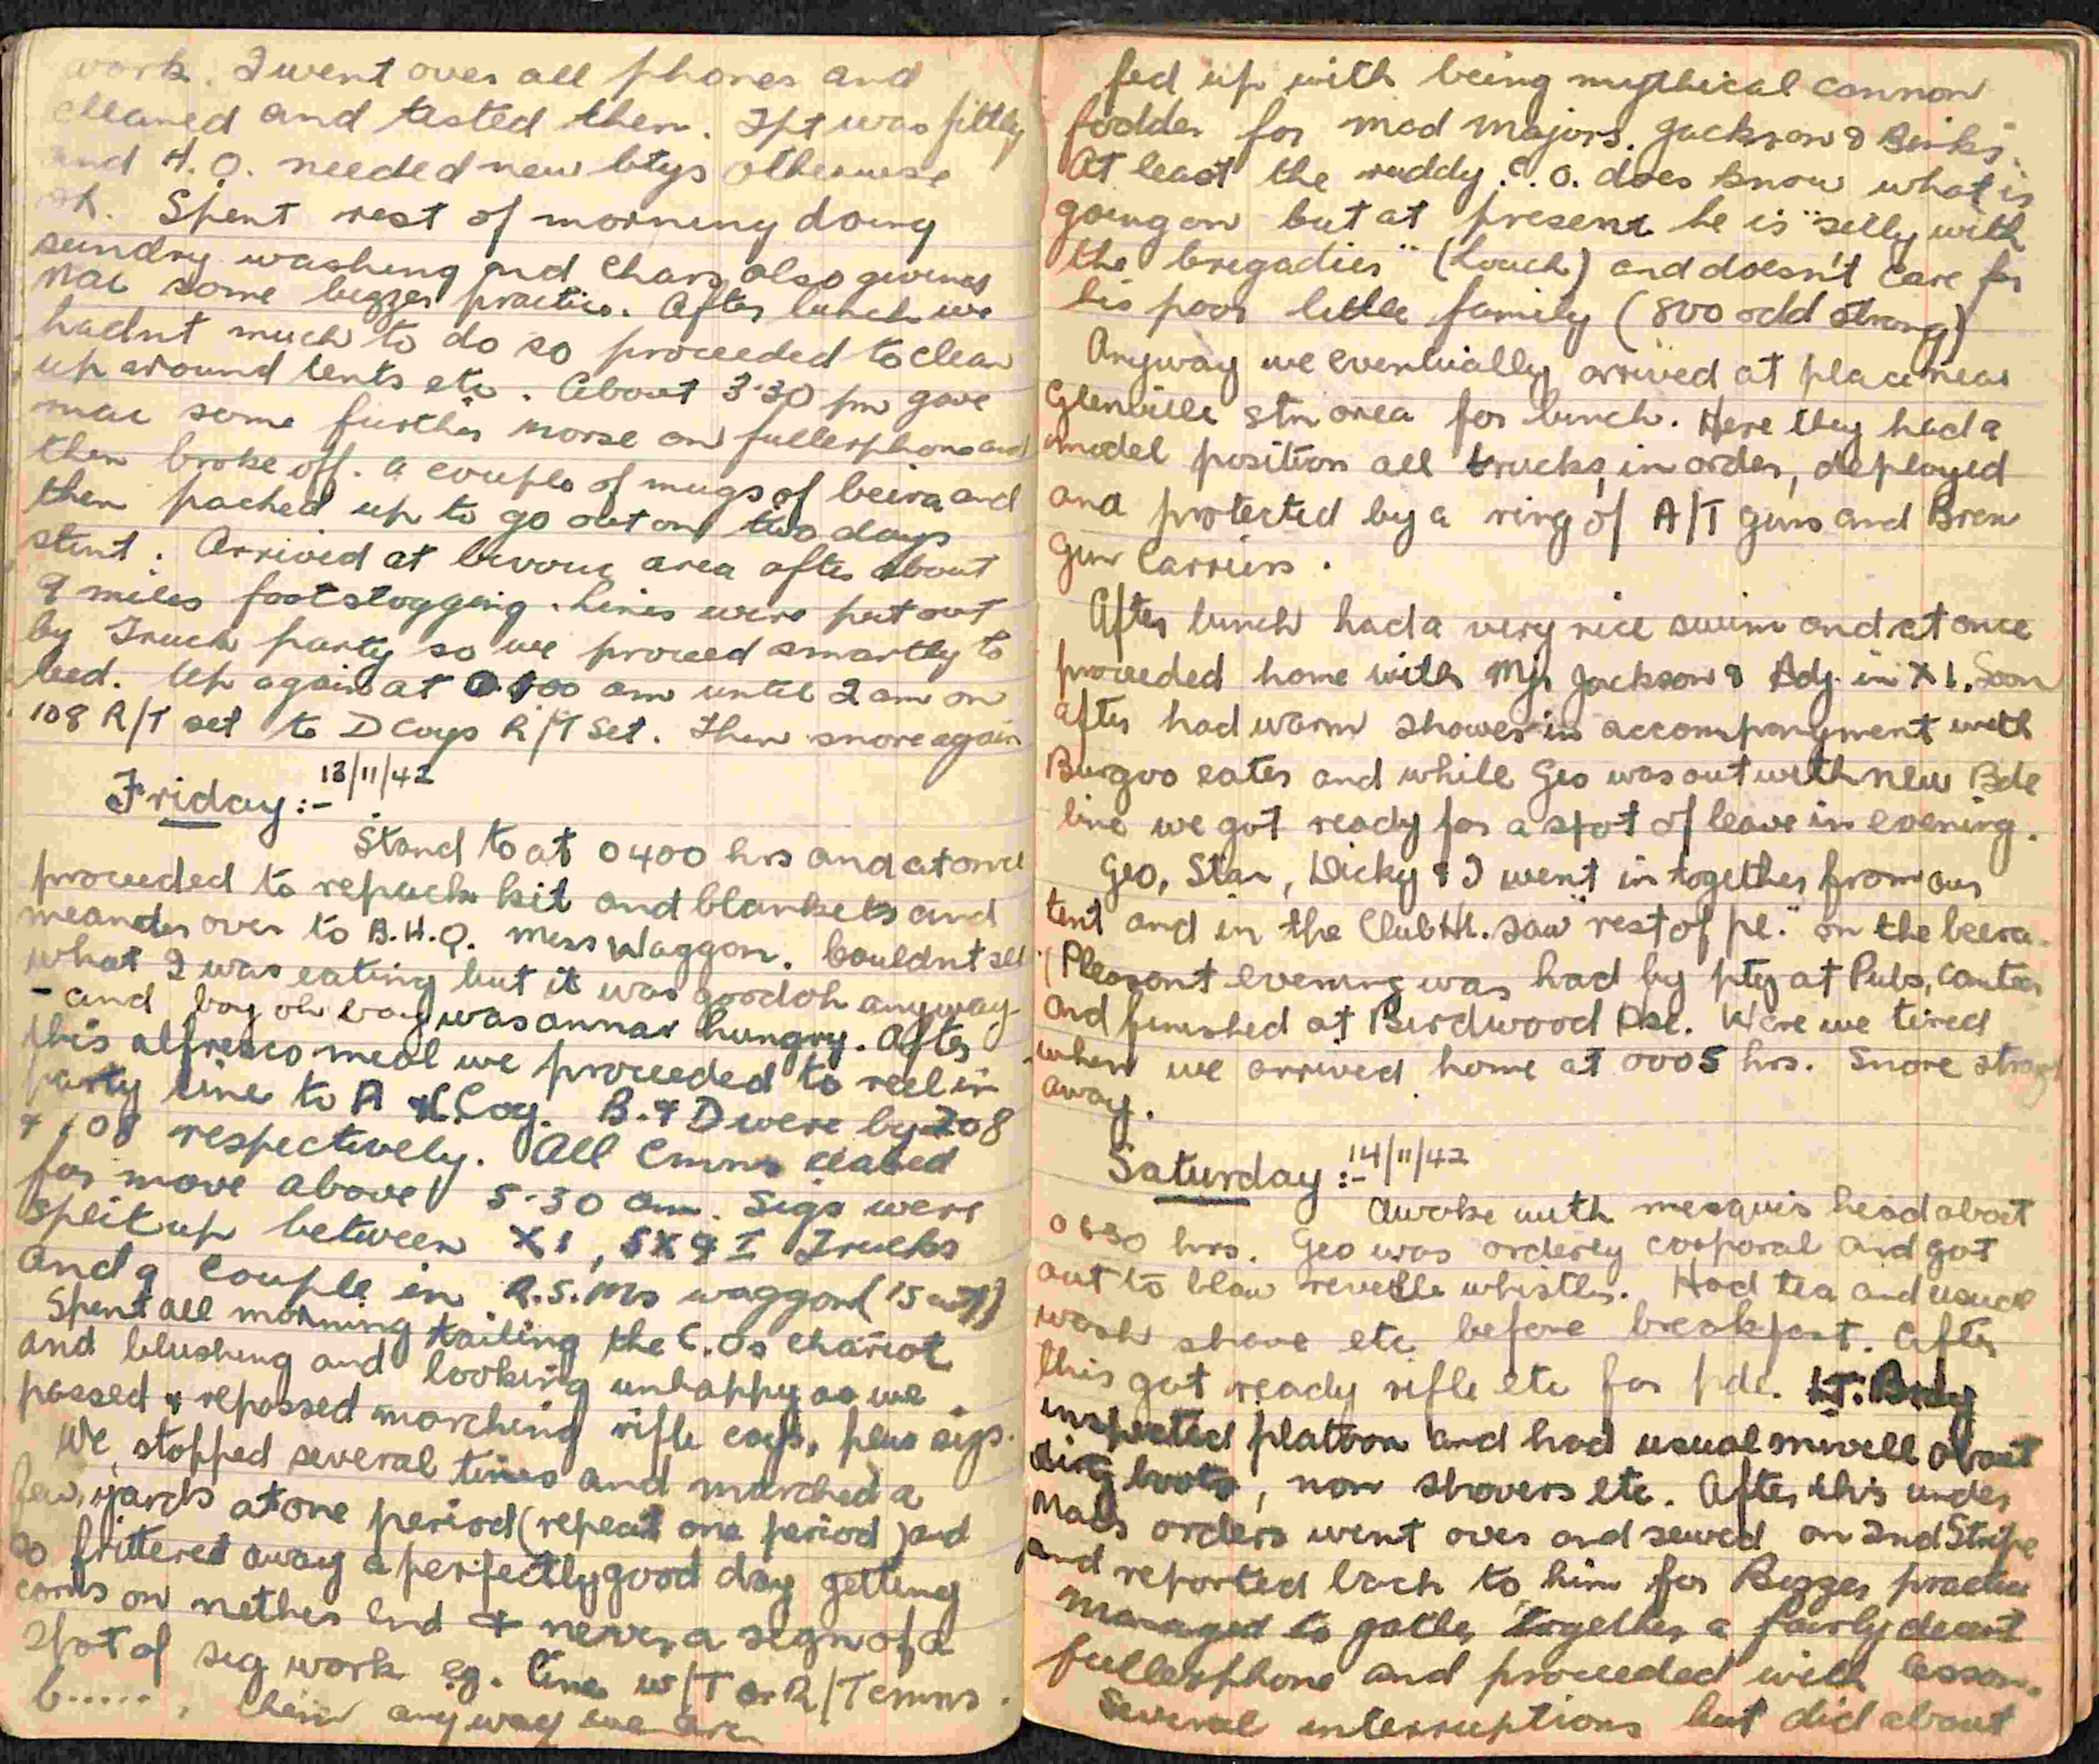 work. I went over all phones and
cleaned and tested them. Tpt was filthy
and H.Q. needed new btys otherwise
ok. Spent rest of morning doing
sundry washing and chars also giving
Mac some buzzer practice. After lunch we
hadnt much to do so proceeded to clean
up around tents etc. About 3.30 pm gave
mac some further morse on fullerphone and
then broke off. A couple of mugs of beira and
then packed up to go out on two days
stint. Arrived at bivouc area after about
9 miles footslogging. Lines were put out
by Truck party so we proceed smartly to
bed. Up again at 0100 am until 2 am on
108 R/T set to D Coys R/T Set. Then snore again
Friday :- 13/11/42
Stand to at 0400 hrs and at once
proceeded to repack kit and blankets and
meander over to B.H.Q. Mess Waggon. Couldnt see
what I was eating but it was goodoh anyway
- and boy oh boy was annar hungry. After
this alfresco meal we proceeded to reel in
party line to A & C Coy. B. & D were by 208
& 108 respectively. All Cmns ceased
for move above 5.30 am. Sigs were
split up between X1, 5X & I Trucks
and a couple in R.S.Ms waggon (15 cwt)
Spent all morning tailing the C.Os chariot
and blushing and looking unhappy as we
passed & repassed marching rifle coys, plus sigs.
We stopped several times and marched a
few yards at one period (repeat one period) and
so frittered away a perfectly good day getting
corns on nether end & never a sign of a
spot of sig work eg. line w/T or R/T cmns.
b....., anyway we are
fed up with being mythical cannon
fodder for mad majors. Jackson & Binks.
At least the ruddy C.O. does know what is
going on but at present he is "silly with
the brigadier" (Louch) and doesn't care for
his poor little family (800 odd strong)
Anyway we eventually arrived at place near
Glenville stn area for lunch. Here they had a
model position all trucks, in order, deployed
and protected by a ring of A/T guns and Bren
Gun Carriers.
After lunch had a very nice swim and at once
proceeded home with Mjr Jackson & Adj in X1. Soon
after had warm shower in accompanyment with
Burgoo eater and while Geo was out with new Bde
line we got ready for a spot of leave in evening.
Geo, Stan, Dicky & I went in together from our
tent and in the Club Htl. saw "rest of pl." on the beera.
Pleasant evening was had by pty at Pubs, Canteen
and finished at Birdwood Pde. Were we tired
when we arrived home at 0005 hrs. Snore straight
away.
Saturday :- 14/11/42
Awoke with head about
0630 hrs. Geo was orderly corporal and got
out to blow reveille whistle. Had tea and usual
wash shave etc before breakfast. After
this got ready rifle etc for pde. LT. Brdy
inspected platoon and had usual about
dirty boots, non shavers etc. After this under
Macs orders went over and sewed on 2nd Stripe
and reported back to him for Buzzer practice
managed to gather together a fairly decent
fullerphone and proceeded with lesson.
Several interruptions but did about